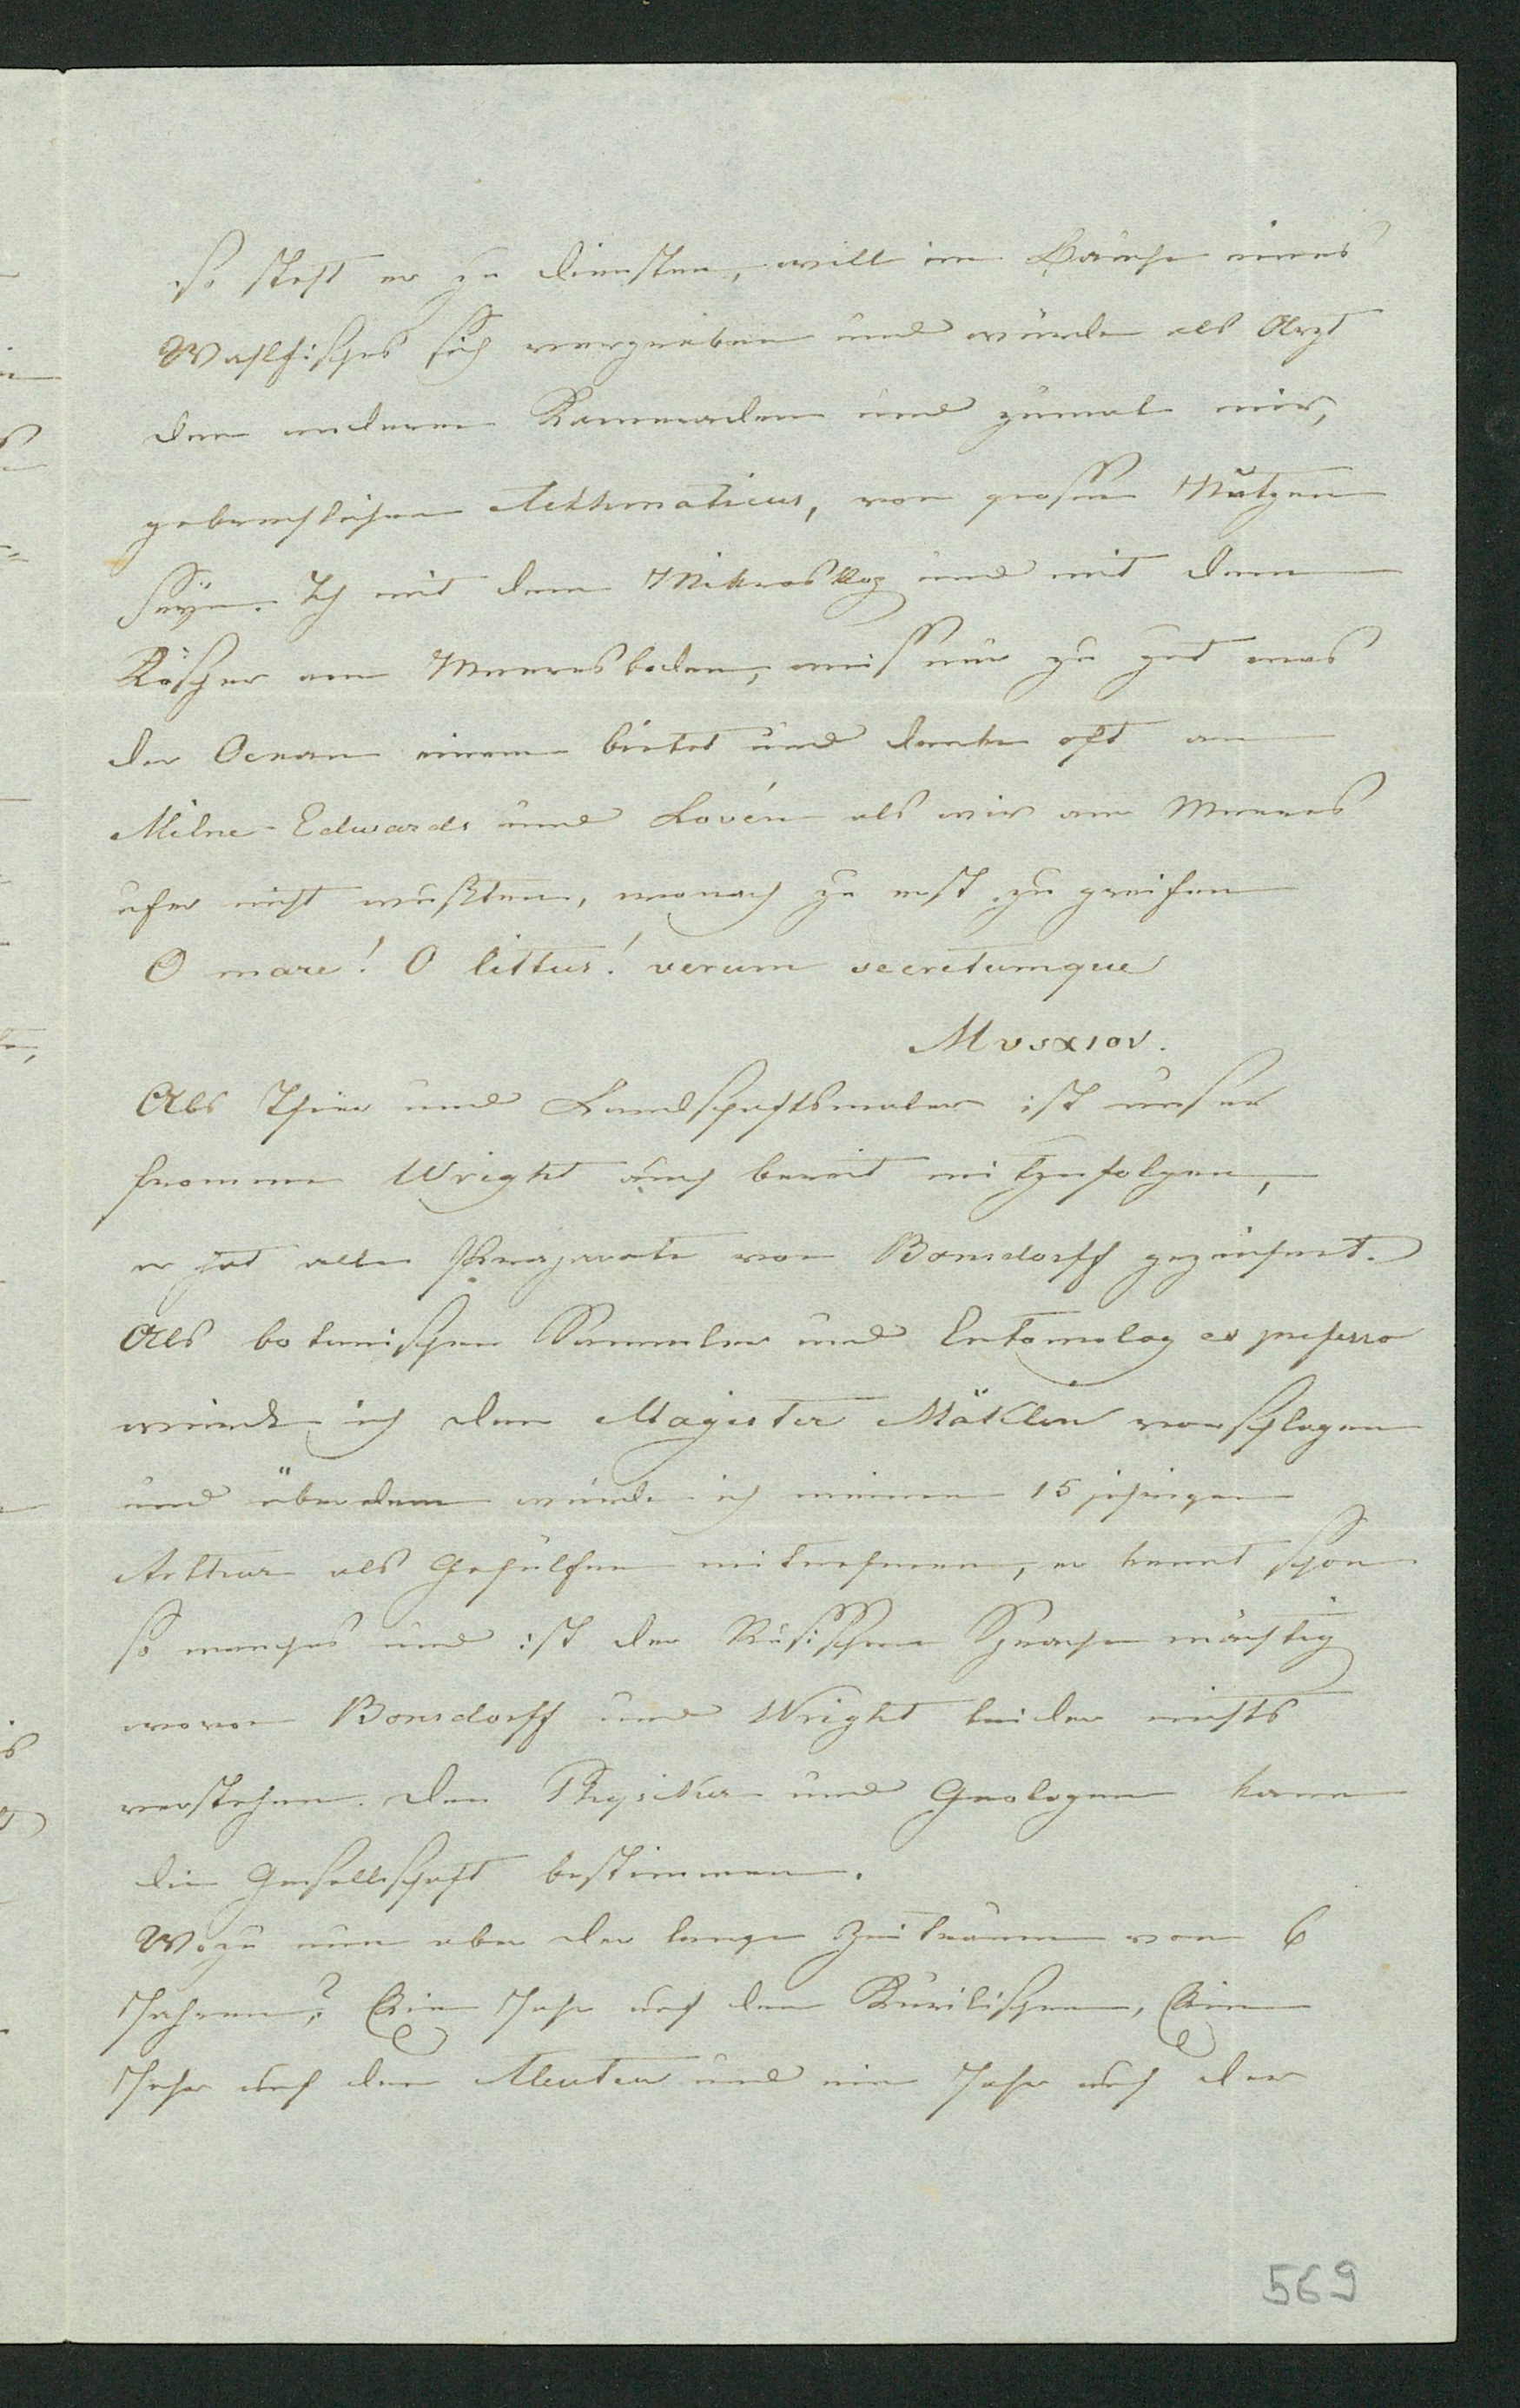 so steht er zu Diensten, will im Bauche eines
Wahlfisches sich vergraben und würde als Arzt
den anderen Kameraden und zumal mir,
gebrechlichen Asthmaticus, von grossem Nutzen
seyn. Ich mit dem Mikroskop und mit dem
Kätscher am Meeresboden, weiss nur zu gut was
der Ocean einem bietet und denke oft an
Milne-Edwards und Lovén als wir am Meeres
ufer nicht wußten, wonach zu erst zu greifen
O mare! O littus! verum secretumque
Μουσειον.
Als Thier und Landschaftsmaler ist unser
frommer Wright auch bereit mitzufolgen,
er hat alle Praeparate von Bonsdorff gezeichnet.
Als botanischen Sammler und Entomolog ex professo
würde ich den Magister Mäklin vorschlagen
und überdem würde ich meinen 15 jährigen
Arthur als Gehülfen mitnehmen, er kennt schon
so manches und ist der Russischen Sprache mächtig
wovon Bonsdorff und Wright leider nichts
verstehen. Den Physiker und Geologen kann
die Gesellschaft bestimmen.
Wozu nun aber der lange Zeitraum von 6
Jahren? Ein Jahr auf den Kurilischen, Ein
Jahr auf den Aleuten und ein Jahr auf der
569